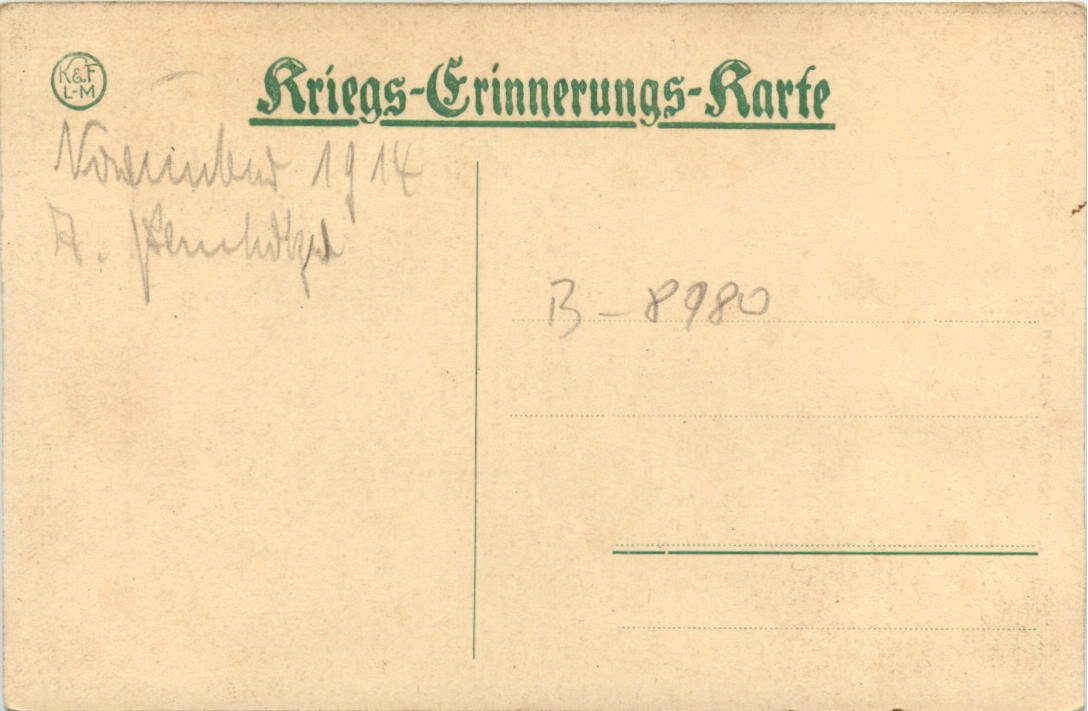 K&F
L-M
Kriegs-Erinnerungs-Karte
November 1914
A.
B - 8980